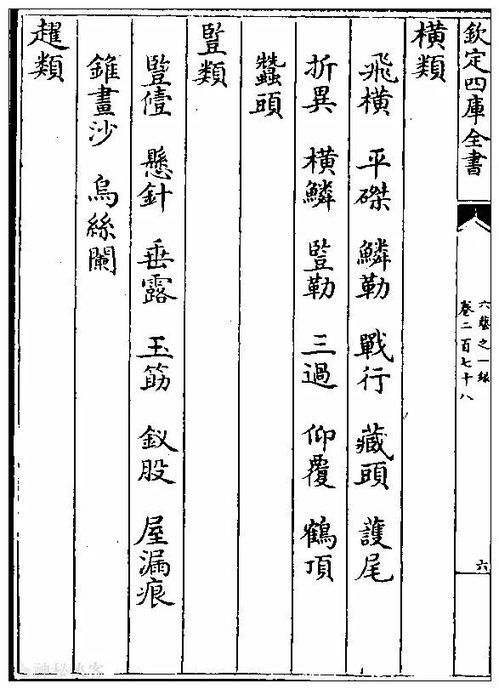 欽定四庫全書
六藝之一録
卷二百七十八
六
橫類
飛橫 平磔 鱗勒 戰行 藏頭 護尾
折異 橫鱗 竪勒 三過 仰覆 鶴頂
蠶頭
竪類
竪㨒 懸針 垂露 玉筋 釵股 屋漏痕
錐畫沙 烏絲闌
趯類